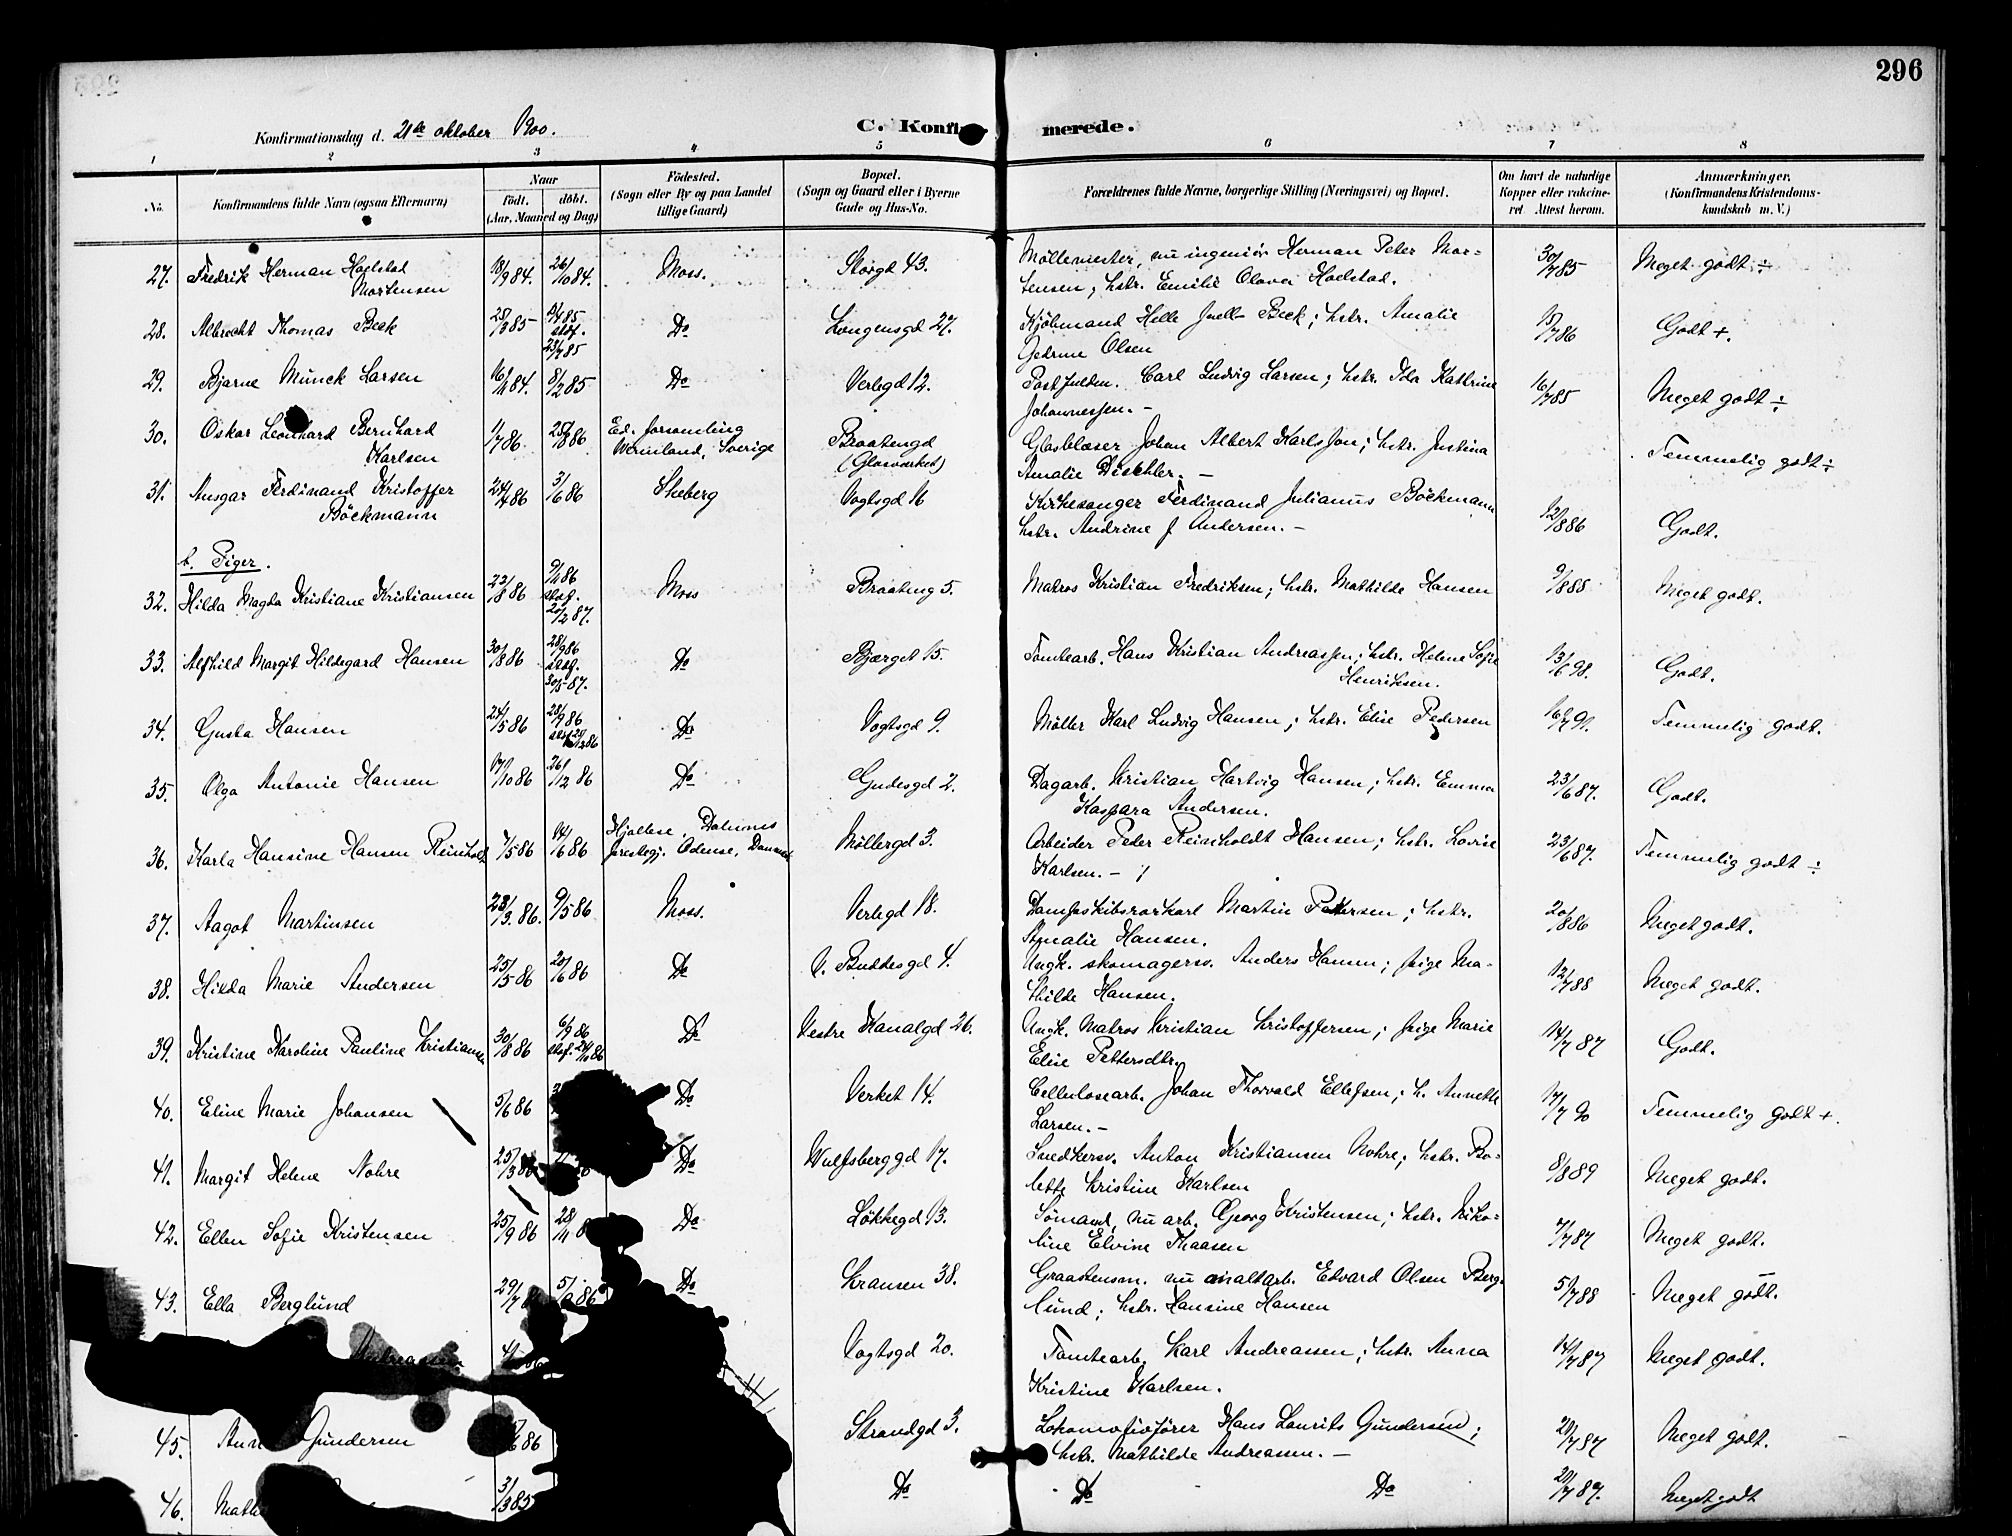 296
Konfirmationsdag d. 21de oktober 1900.
C. Konfirmerede.
1 2 3 4 5 6 7 8
No. Konfirmandens fulde Navn (ogsaa Efternavn) Naar født. døbt. (Aar, Maaned og Dag) Fødested. (Sogn eller By og paa Landet tillige Gaard) Bopæl. (Sogn og Gaard eller i Byerne Gade og Hus-No. Forældrenes fulde Navne, borgerlige Stilling (Næringsvei) og Bopæl. Om havt de naturlige Kopper eller vakcineret Attest herom. Anmærkninger. (Konfirmandens Kristendomskundskab m. V.)
27. Fredrik Herman Hoelstad Mortensen 18/9 84. 26/10 84. Moss. Storgd 43. Møllemester, nu ingeniør Herman Peter Mortensen; hstr. Emilie Olava Hoelstad. 30/7 85 Meget godt ÷
28. Albrecht Thomas Beck 28/3 85 stad. 23/7 85 Do Longensgd 27. Kjøbmand Helle Juell Beck; hstr. Amalie Gedrine Olsen 15/7 86 Godt +.
29. Bjarne Munck Larsen 16/11 84. 8/2 85 Do Verlegd 12. Postfuldm. Carl Ludvig Larsen; hstr. Ida Kathrine Johannessen. - 16/7 85 Meget godt ÷
30. Oskar Leonhard Bernhard Karlsen 11/7 86. 25/8 86 Ed. forsamling Wermland, Sverige Braatengd (Glasværket) Glasblæser Johan Albert Karlsson; hstr. Justina Amalie Dischler. - Temmelig godt ÷
31. Ansgar Ferdinand Kristoffer Böckmann 24/4 86 3/6 86 Skeberg Vogtsgd 16 Kirkesanger Ferdinand Julianus Böckmann hstr. Andrine f Andersen. - 12/8 86 Godt.
b. Piger.
32. Hilda Magda Kristiane Kristiansen 23/8 86 9/11 86 stad. 20/2 87. Moss Braateng 5. Matros Kristian Fredriksen; hstr. Mathilde Hansen 9/8 88 Meget godt.
33. Alfhild Margit Hildegard Hansen 30/8 86 28/9 86 stad. 30/5 87. Do Bjerget 15. Tomtearb. Hans Kristian Andreassen; hstr. Helene Sofie Henriksen. 13/6 98. Godt.
34. Gusta Hansen 24/5 86 28/9 86 Do Vogtsgd 9. Møller Karl Ludvig Hansen; hstr. Elise Pedersen 16/7 91. Temmelig godt.
35. Olga Antonie Hansen 17/10 86 26/12 86 Do Gudesgd 2. Dagarb. Kristian Hartvig Hansen; hstr. Emma Kaspara Andersen. 23/6 87. Godt.
36. Karla Hansine Hansen Reinholt 7/5 86 14/6 86 Hjallese, Dalums Prestegj. Odense, Danmark Møllergd 3. Arbeider Peder Reinholdt Hansen; hstr. Lovise Karlsen. - 23/6 87. Temmelig godt ÷
37. Aagot Martinsen 28/3. 86. 9/5 86 Moss. Verlegd 18. Dampskibsrorkarl Martin Pettersen; hstr. Amalie Hansen. 20/8 86 Meget godt.
38. Hilda Marie Andersen 25/5 86 20/6 86 Do V. Buddesgd 4. Ungk. skomagersv. Anders Hansen; pige Mathilde Hansen. 12/7 88 Meget godt.
39. Kristine Karoline Pauline Kristiansen 30/8 86 6/9 86 Do Vestre Kanalgd 26. Ungk. Matros Kristian Kristoffersen; pige Marie Elise Pettersdtr. 14/7 87 Godt.
40. Eline Marie Johansen 5/6 86 Do Verket 14. Cellulosearb. Johan Thorvald Ellefsen; h. Annette Larsen. - 17/7 90 Temmelig godt +.
41. Margit Helene Nohre 25/3 86 Do Wulfsberggd 17. Snedkersv. Anton Kristiansen Nohre; hstr. Bolette Kristine Karlsen 8/8 89 Meget godt.
42. Ellen Sofie Kristensen 25/9 86 28/11 8 Do Løkkegd 13. Sømand, nu arb. Georg Kristensen; hstr. Nikoline Elvine Thaasen 7/7 87 Meget godt.
43. Ella Berglund 29/7 5/9 86 Do Kransen 38. Graastensm. nu maltarb. Edvard Olsen Berglund; hstr. Hansine Hansen 5/7 88 Meget godt.
Andreassen Vogtsgd 20. Tomtearb. Karl Andreassen; hstr. Anna Kristine Karlsen. 14/7 87 Meget godt.
45. Ann Gundersen 86 Strandgd 3. Lokomotivfører Hans Laurits Gundersen; hstr. Mathilde Andreassen. - 20/7 87 Meget godt.
46. Math 3/3 85 Do Do Do 20/7 87. Meget godt